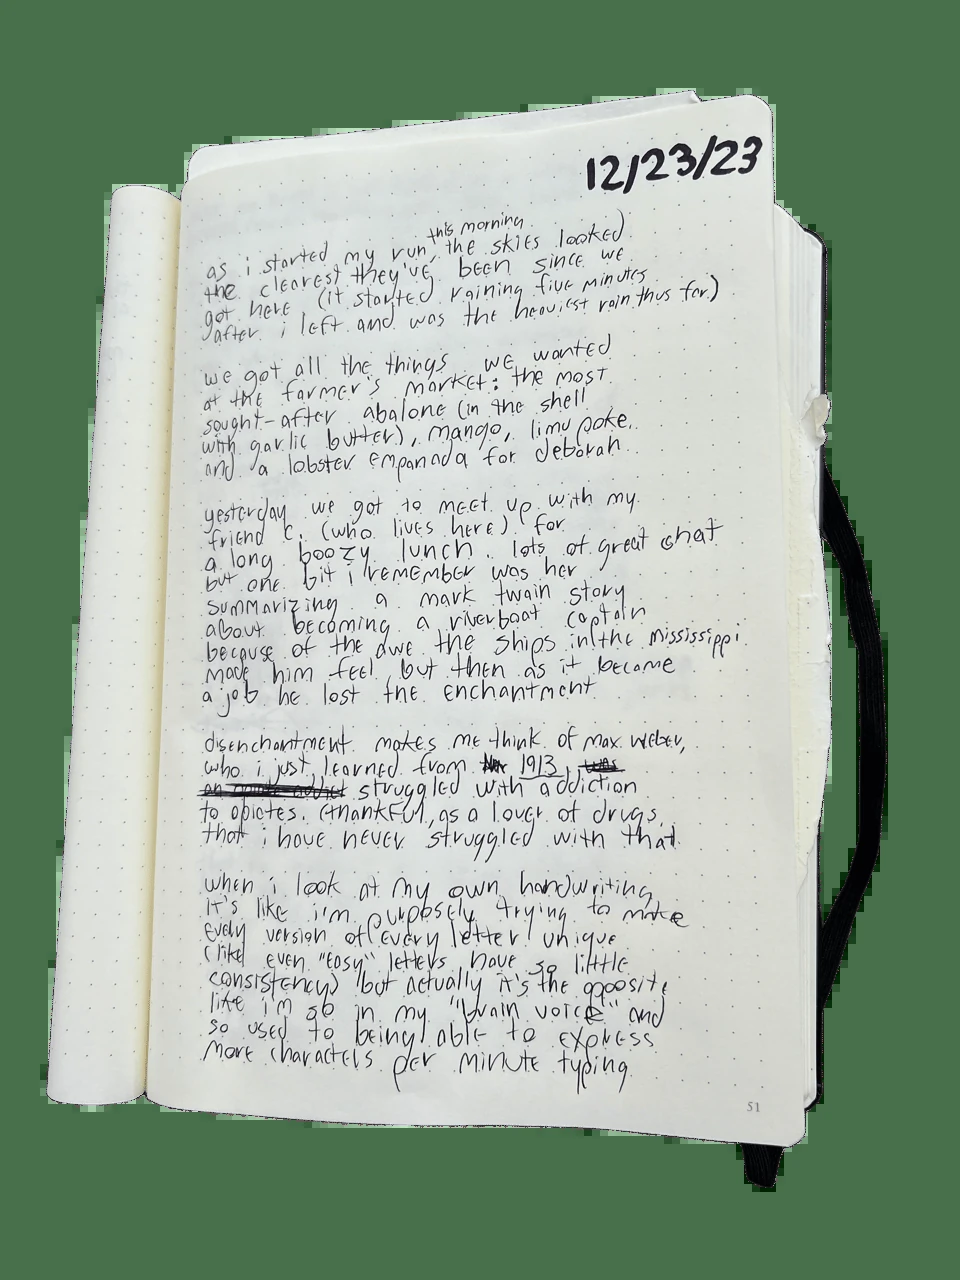 12/23/23
this morning
as i started my run, the skies looked
the clearest they've been since we
got here (it started raining five minutes
after i left and was the heaviest rain thus far)
we got all the things we wanted
at the farmer's market: the most
sought-after abalone (in the shell
with garlic butter), mango, limu poke,
and a lobster empanada for deborah
yesterday we got to meet up with my
friend C. (who lives here) for
a long boozy lunch. lots of great chat
but one bit i remember was her
summarizing a mark twain story
about becoming a riverboat captain
because of the awe the ships in the mississippi
made him feel, but then as it became
a job he lost the enchantment
disenchantment makes me think of max weber,
who i just learned from 1913,
struggled with addiction
to opiates. (thankful, as a lover of drugs,
that i have never struggled with that
when i look at my own handwriting
it's like i'm purposely trying to make
every version of every letter unique
(like even "easy" letters have so little
consistency) but actually it's the opposite
like i'm so in my "brain voice" and
so used to being able to express
more characters per minute typing
51